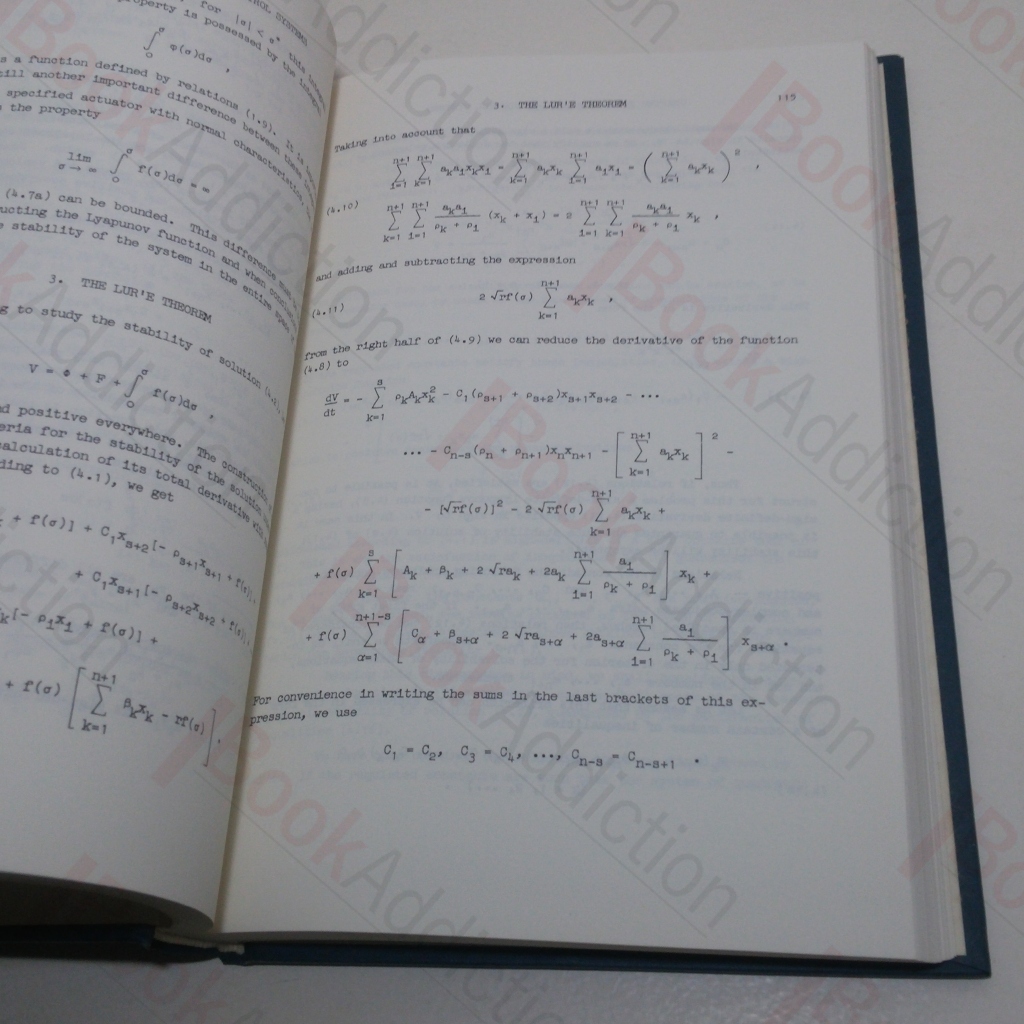 CONTROL SYSTEMS
for |σ| < σ* this
property is possessed by the
∫₀^σ φ(σ)dσ ,
a function defined by relations (1.9). It is
still another important difference between these
specified actuator with normal characteristics,
the property
lim_{σ→∞} ∫₀^σ f(σ)dσ = ∞
(4.7a) can be bounded. This difference must
constructing the Lyapunov function and when
stability of the system in the entire space
3. THE LUR'E THEOREM
to study the stability of solution
V = Φ + F + ∫₀^σ f(σ)dσ ,
positive everywhere. The construction
criteria for the stability of the solution
calculation of its total derivative
according to (4.1), we get
+ f(σ)] + C₁x_{s+2}[- ρ_{s+1}x_{s+1} + f(σ)]
+ C₁x_{s+1}[- ρ_{s+2}x_{s+2} + f(σ)]
[- ρ₁x₁ + f(σ)] +
+ f(σ) [∑_{k=1}^{n+1} β_k x_k - rf(σ)] .
3. THE LUR'E THEOREM 119
Taking into account that
∑_{i=1}^{n+1} ∑_{k=1}^{n+1} a_k a_i x_k x_i = ∑_{k=1}^{n+1} a_k x_k ∑_{i=1}^{n+1} a_i x_i = (∑_{k=1}^{n+1} a_k x_k)² ,
(4.10) ∑_{k=1}^{n+1} ∑_{i=1}^{n+1} a_k a_i / (ρ_k + ρ_i) (x_k + x_i) = 2 ∑_{i=1}^{n+1} ∑_{k=1}^{n+1} a_k a_i / (ρ_k + ρ_i) x_k ,
and adding and subtracting the expression
(4.11) 2 √r f(σ) ∑_{k=1}^{n+1} a_k x_k ,
from the right half of (4.9) we can reduce the derivative of the function
(4.8) to
dV/dt = - ∑_{k=1}^{s} ρ_k A_k x_k² - C₁(ρ_{s+1} + ρ_{s+2})x_{s+1}x_{s+2} - ...
... - C_{n-s}(ρ_n + ρ_{n+1})x_n x_{n+1} - [∑_{k=1}^{n+1} a_k x_k]² -
- [√r f(σ)]² - 2 √r f(σ) ∑_{k=1}^{n+1} a_k x_k +
+ f(σ) ∑_{k=1}^{s} [A_k + β_k + 2 √r a_k + 2a_k ∑_{i=1}^{n+1} a_i / (ρ_k + ρ_i)] x_k +
+ f(σ) ∑_{α=1}^{n+1-s} [C_α + β_{s+α} + 2 √r a_{s+α} + 2a_{s+α} ∑_{i=1}^{n+1} a_i / (ρ_k + ρ_i)] x_{s+α} .
For convenience in writing the sums in the last brackets of this ex-
pression, we use
C₁ = C₂, C₃ = C₄, ..., C_{n-s} = C_{n-s+1} .